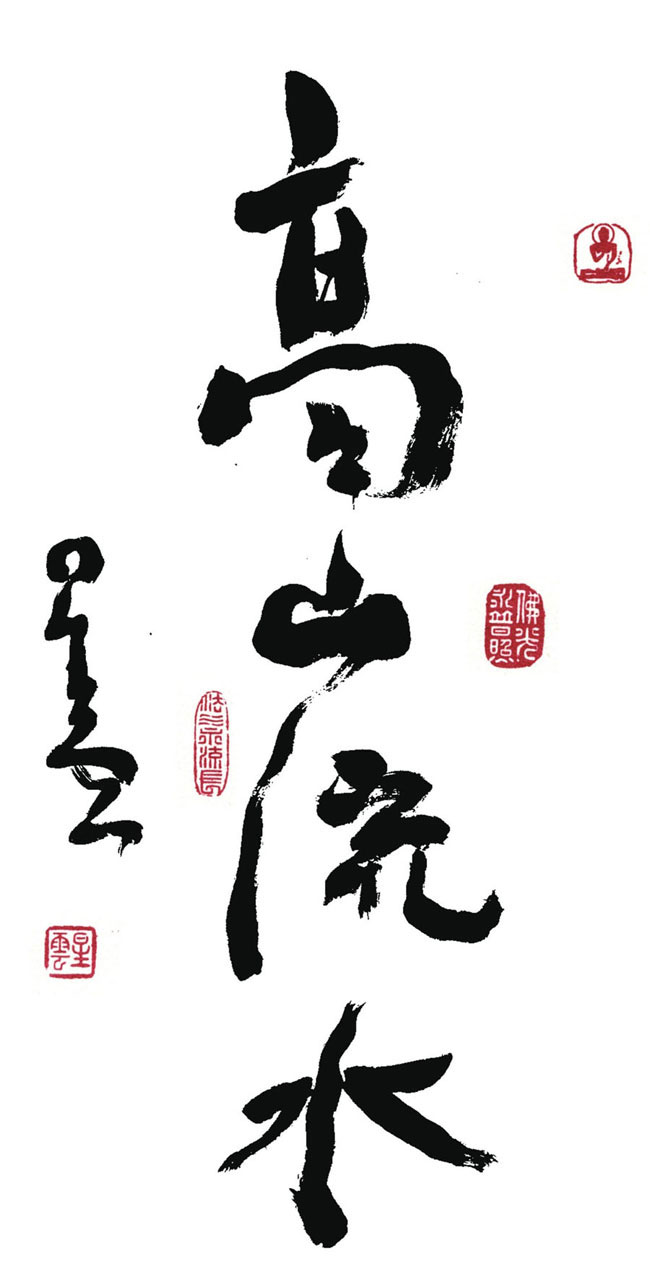 高山流水
佛光
普照
法水流長
星雲
星雲